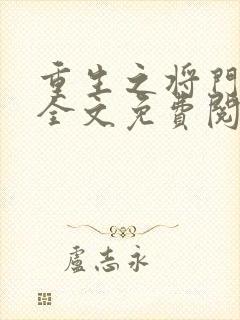 重生之将門
全文免費閱
盧志永